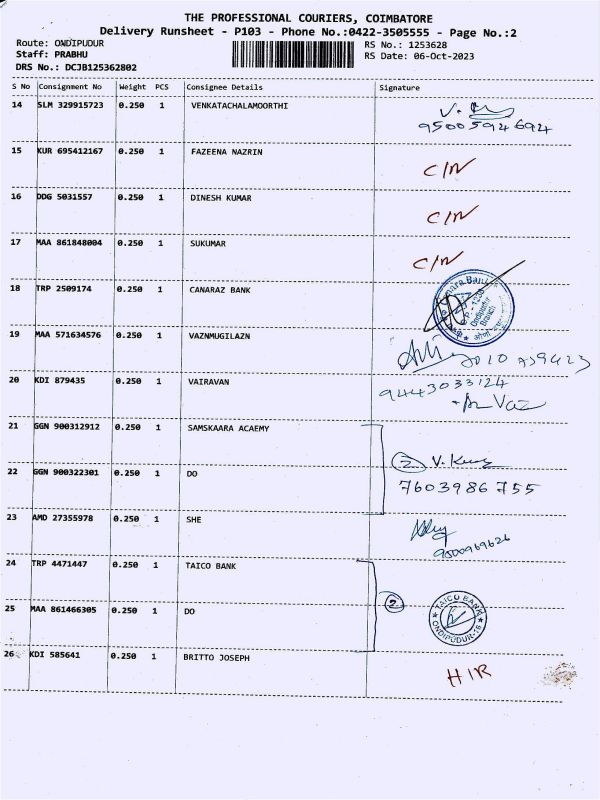 THE PROFESSIONAL COURIERS, COIMBATORE
Delivery Runsheet - P103 - Phone No.:0422-3505555 - Page No.:2
Route: ONDIPUDUR
Staff: PRABHU
DRS No.: DCJB125362802
RS No.: 1253628
RS Date: 06-Oct-2023
S No Consignment No Weight PCS Consignee Details Signature
14 SLM 329915723 0.250 1 VENKATACHALAMOORTHI
9500594694
15 KUR 695412167 0.250 1 FAZEENA NAZRIN C/N
16 DDG 5031557 0.250 1 DINESH KUMAR C/N
17 MAA 861848004 0.250 1 SUKUMAR C/N
18 TRP 2509174 0.250 1 CANARAZ BANK
Ondipudur
Branch
19 MAA 571634576 0.250 1 VAZNMUGILAZN
20 KDI 879435 0.250 1 VAIRAVAN 9443033124
21 GGN 900312912 0.250 1 SAMSKAARA ACAEMY
2
22 GGN 900322301 0.250 1 DO 7603986755
23 AMD 27355978 0.250 1 SHE
9500969626
24 TRP 4471447 0.250 1 TAICO BANK
2
TAICO BANK
ONDIPUDUR-16
25 MAA 861466305 0.250 1 DO
26 KDI 585641 0.250 1 BRITTO JOSEPH HIR